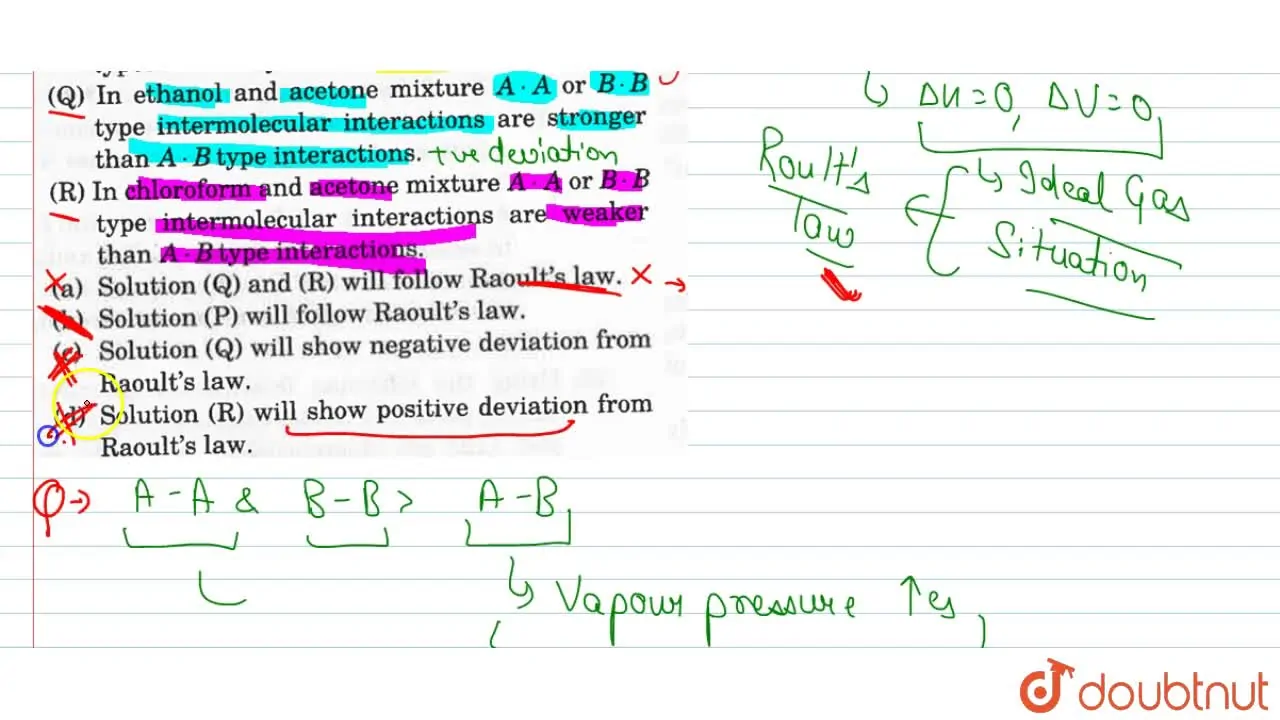 (Q) In ethanol and acetone mixture A · A or B · B
type intermolecular interactions are stronger
than A · B type interactions. +ve deviation
(R) In chloroform and acetone mixture A · A or B · B
type intermolecular interactions are weaker
than A · B type interactions.
(a) Solution (Q) and (R) will follow Raoult's law. ×
(b) Solution (P) will follow Raoult's law.
(c) Solution (Q) will show negative deviation from
Raoult's law.
(d) Solution (R) will show positive deviation from
Raoult's law.
Q → A - A & B - B > A - B
↳ Vapour pressure ↑es
↳ ΔH = 0, ΔV = 0
Roult's
law
↳ Ideal Gas
Situation
doubtnut